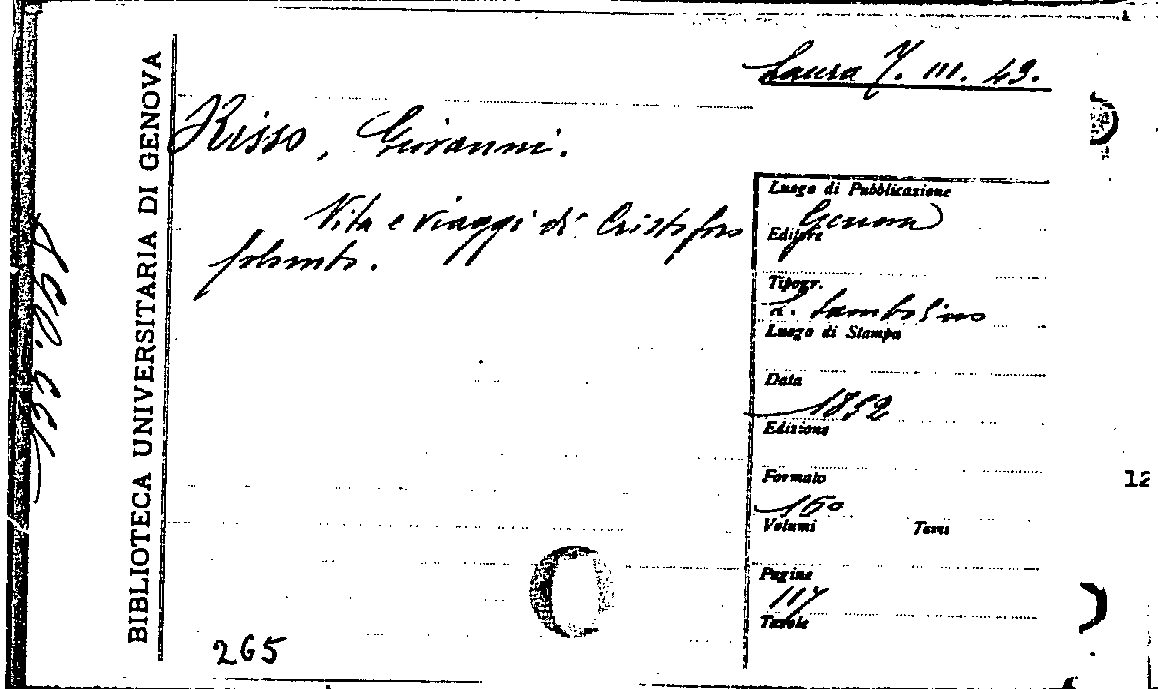 Laura 7. III. 43.
Risso, Giovanni.
Vita e viaggi di Cristoforo
Colombo.
BIBLIOTECA UNIVERSITARIA DI GENOVA
Luogo di Pubblicazione
Genova
Editore
Tipogr.
L. Sambolino
Luogo di Stampa
Data
1892
Edizione
Formato
16°
Volumi Tomi
Pagine
117
Tavole
265
12